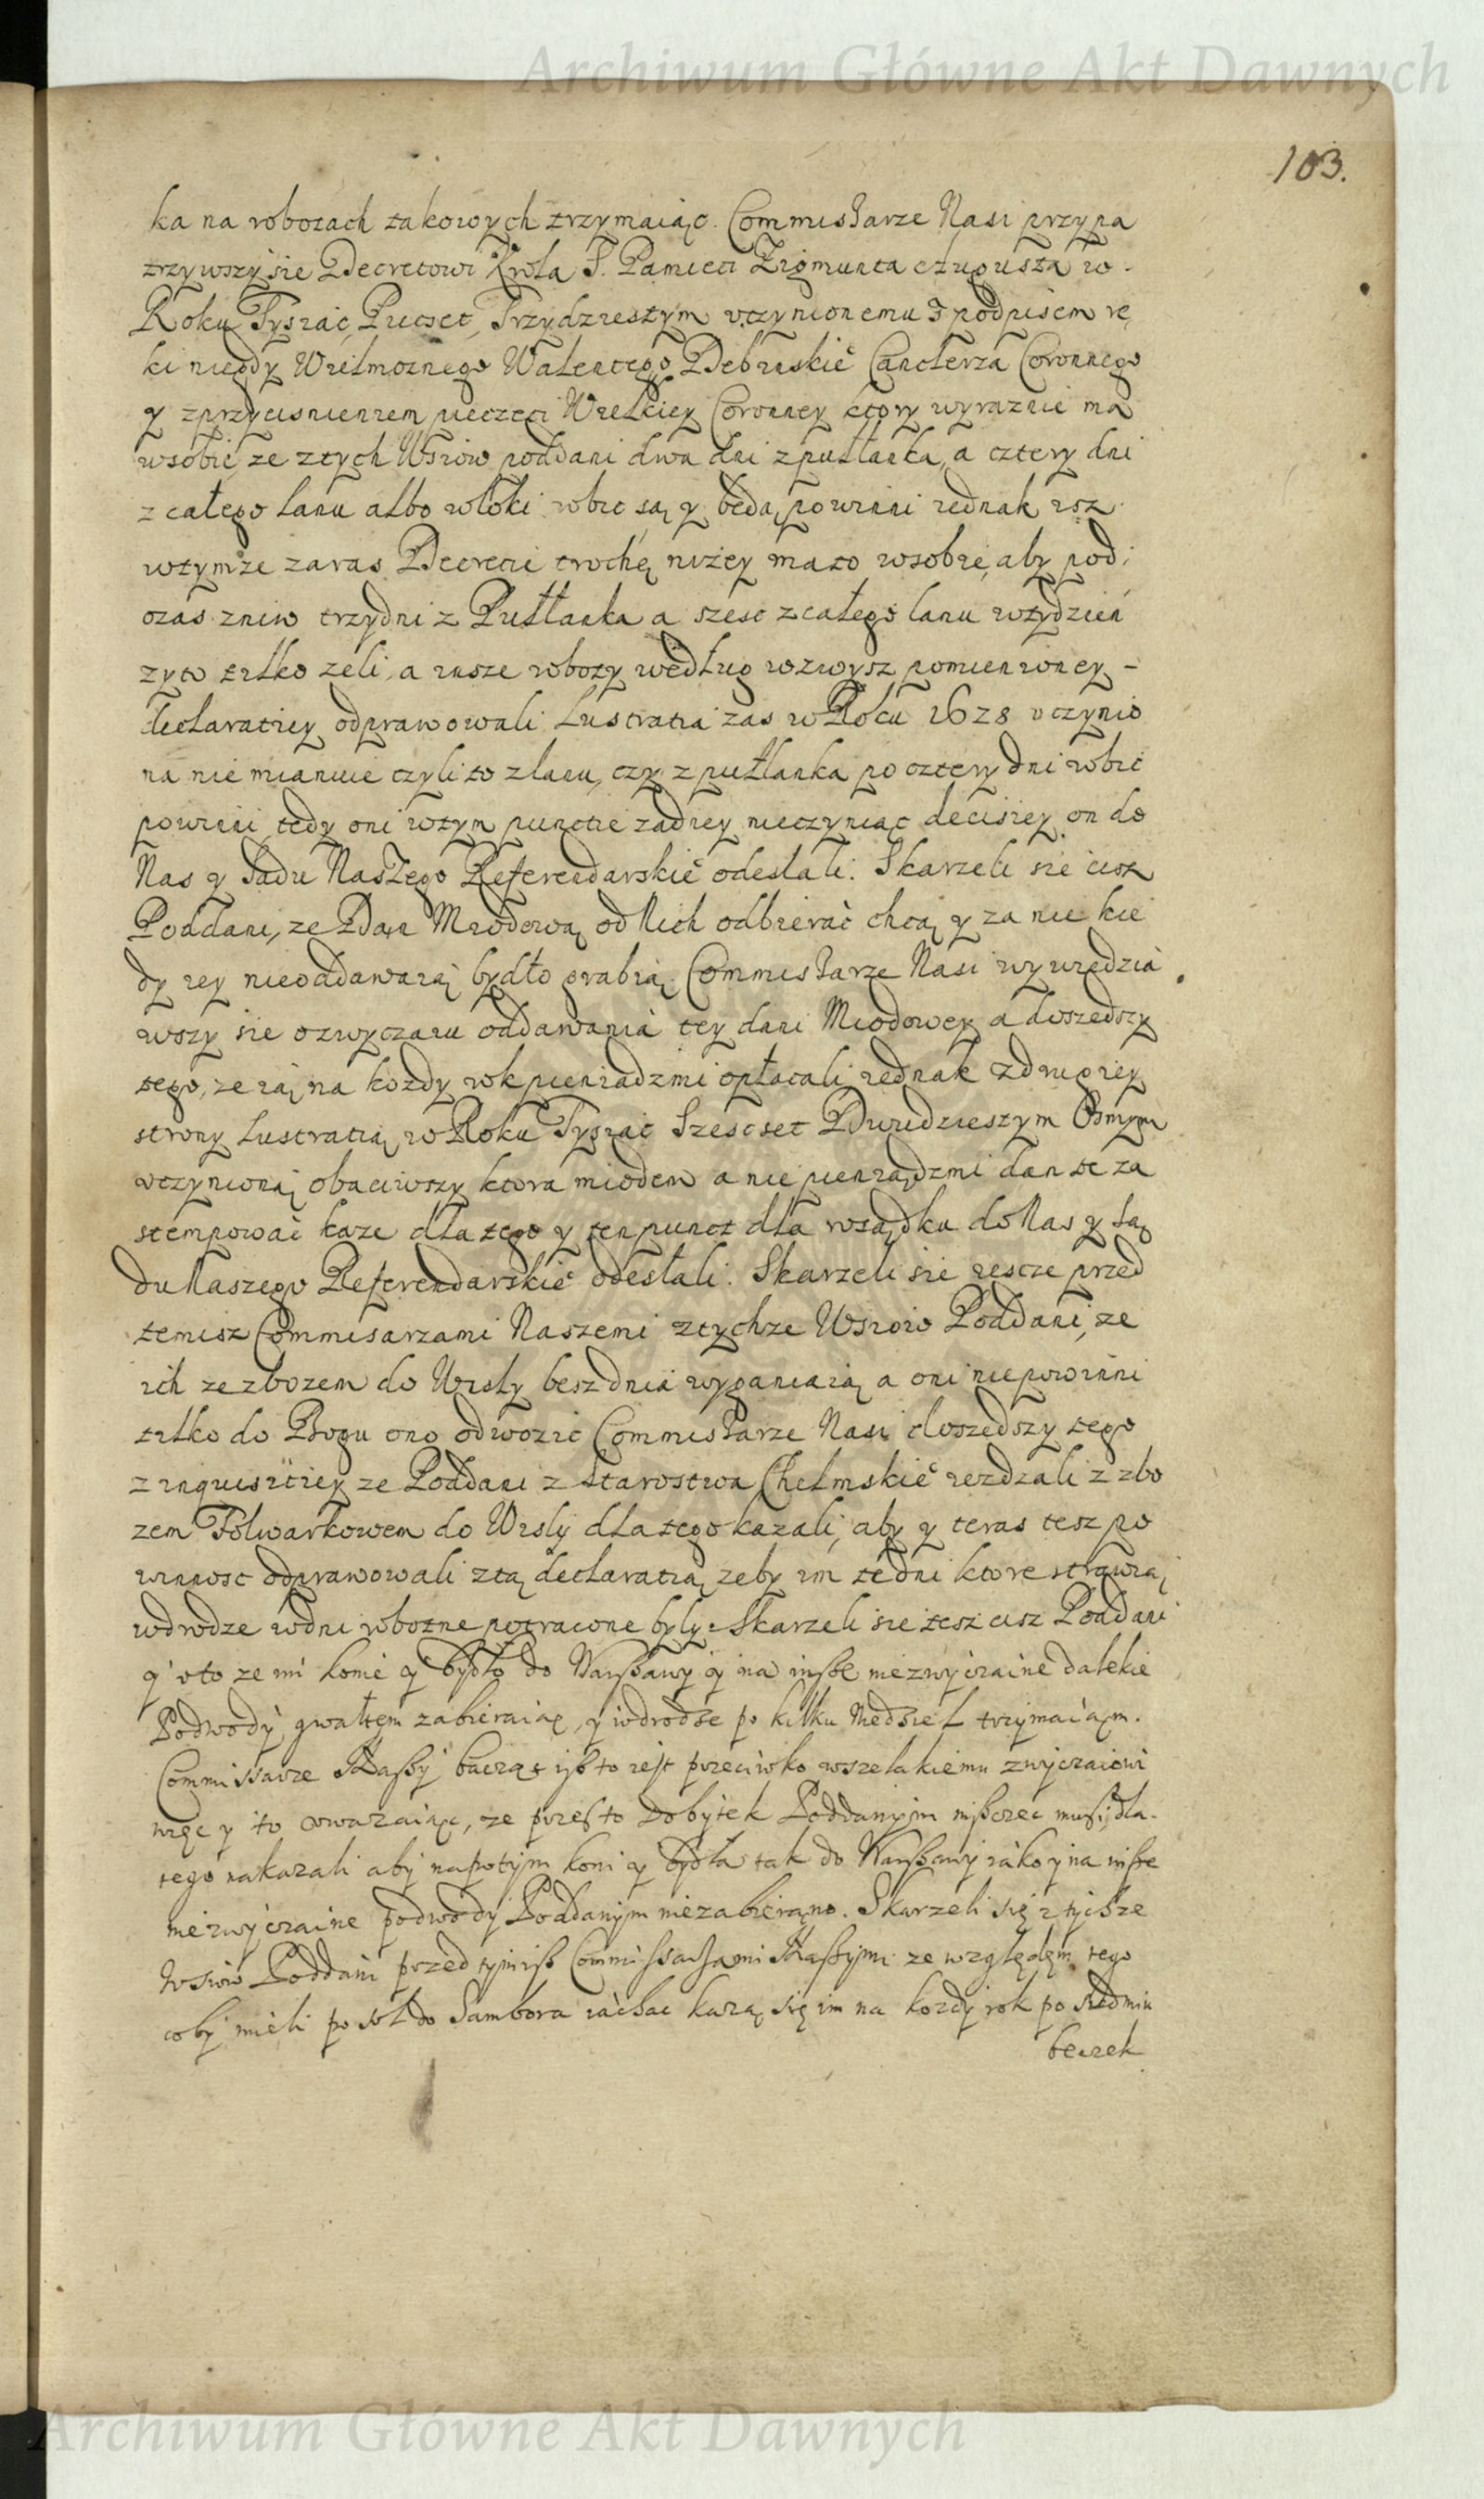 Archiwum Główne Akt Dawnych
103.
ka na robotach takowych trzymaiąc. Commissarze Nasi przypa
trzywszy sie Decretowi Krola S. Pamieci Zigmunta Augusta w
Roku Tysiąc Piecset Trzydziestym vczynionemu z podpisem re
ki niegdy Wielmoznego Walentego Debinskie͡ Canclerza Coronnego
y z przycisnieniem pieczeci Wielkiey Coronney ktory wyraznie ma
wsobie ze ztych Wsiow poddani dwa dni z pułłanka, a cztery dni
z całego łanu albo włoki robic są y będą powinni iednak isz
wtymze zaras Decrecie trochę nizey ma to wsobie, aby pod
czas zniw trzy dni z Pułłanka a szesc z całego łanu wtydzien
zyto tilko zeli, a insze roboty według wzwysz pomienioney
declaratiey odprawowali. Lustratia zas w Roku 1628 vczynio
na nie mianuie czyli to z łanu, czy z pułłanka po cztery dni robic
powinni, tedy oni wtym punctie zadney nieczyniąc decisiey on do
Nas y Sadu Naszego Referendarskie͡ odeslali. Skarzeli sie ciesz
Poddani, ze Dan Miodową od Nich odbierać chcą y za nie kie
dy iey nieoddawaią bydło grabią. Commissarze Nasi wywiedzia
wszy sie o zwyczaiu oddawania tey dani Miodowey a doszedszy
tego, ze ią na kozdy rok pieniadzmi opłacali, iednak z drugiey
strony Lustratią w Roku Tysiąc Szescset Dwudziestym Osmym
vczynioną obaciwszy ktora miodem a nie pieniądzmi dan te za
stempować kaze dla tego y ten punct dla rosądku do Nas y Są
du Naszego Referendarskie͡ odesłali. Skarzeli sie iescze przed
temisz Commisarzami Naszemi z tychze Wsiow Poddani, ze
ich ze zbozem do Wisły besz dnia wyganiaią a oni niepowinni
tilko do Bogu ono odwozic Commissarze Nasi doszedszy tego
z inquisitiey ze Poddani z Starostwa Chelmskie͡ iezdzali z zbo
zem Folwarkowem do Wisly dla tego kazali, aby y teras tesz po
winnosc odprawowali z tą declaratią zeby im te dni ktore strawią
wdrodze wdni robotne potracone były. Skarzeli sie tesz cisz Poddani
y oto ze im konie y bydło do Warszawy y na insze niezwyczaine dalekie
Podwody gwałtem zabieraiąc, y wdrodze po kilku Niedziel trzymaią im.
Commissarze Naszy bacząc isz to iest przeciwko wszelakiemu zwyczaiowi
więc y to vwazaiąc, ze przesto dobytek Poddanym niszczec musi, dla-
tego nakazali aby napotym koni y bydła tak do Warszawy iako y na insze
niezwyczaine podwody Poddanym niezabierąno. Skarzeli się z tychze
Wsiow Poddani przed tymisz Commissarzami Naszymi ze względem tego
coby mieli po sol do Sambora iachac kazą się im na kozdy rok po siedmiu
beczek
Archiwum Główne Akt Dawnych